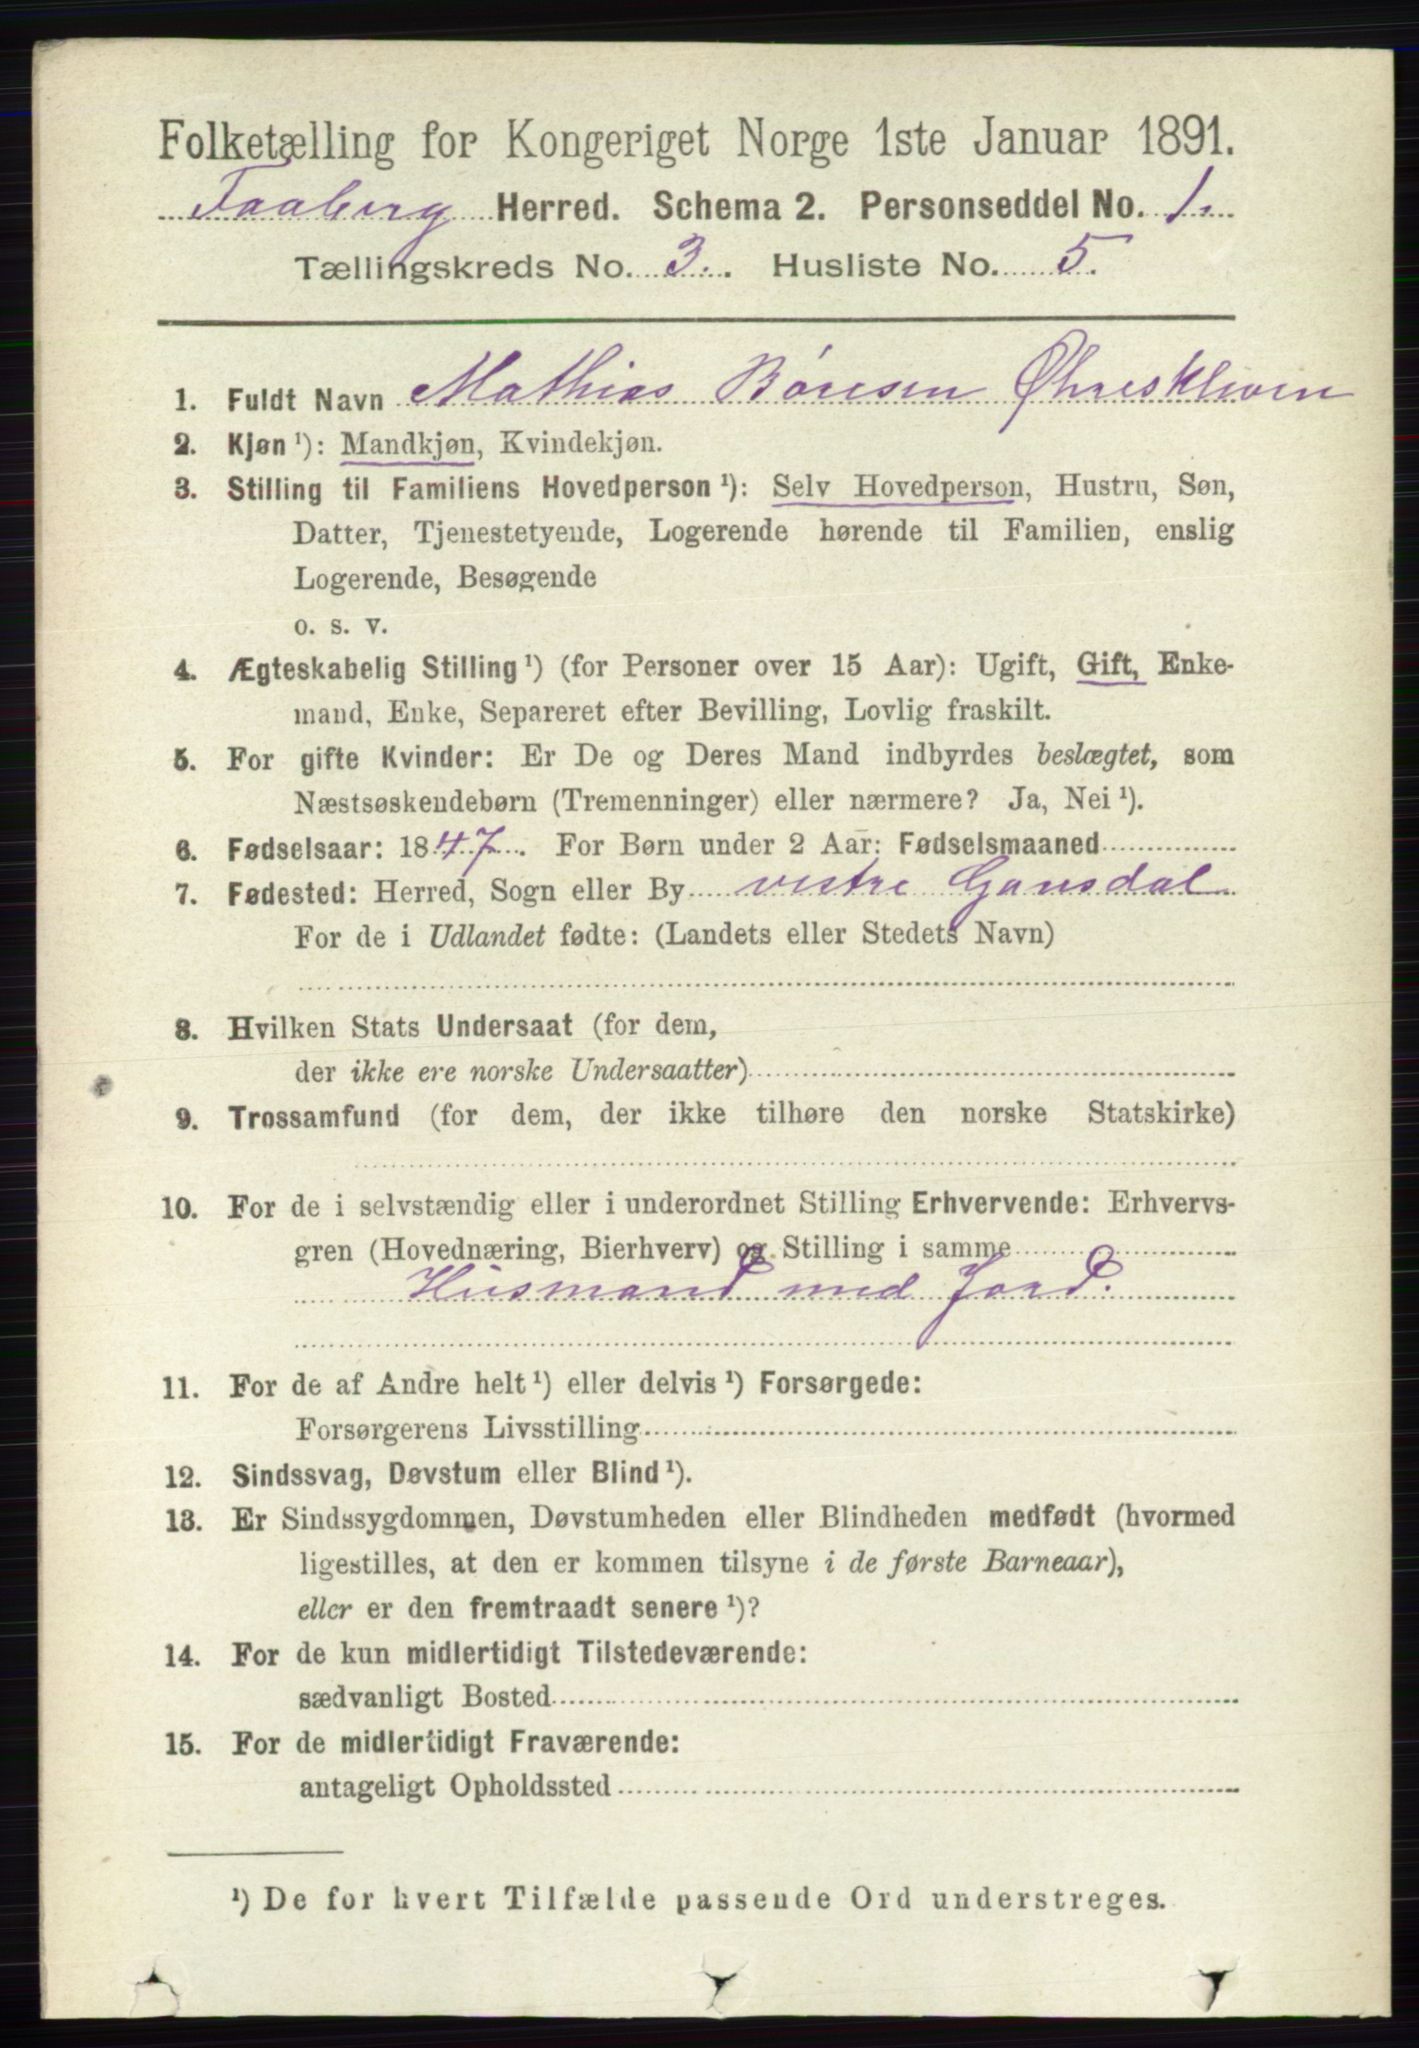 Folketælling for Kongeriget Norge 1ste Januar 1891.
Faaberg Herred. Schema 2. Personseddel No. 1.
Tællingskreds No. 3. Husliste No. 5.
1. Fuldt Navn Mathias Böresen Øhreskleven
2. Kjøn ¹): Mandkjøn, Kvindekjøn.
3. Stilling til Familiens Hovedperson ¹): Selv Hovedperson, Hustru, Søn,
Datter, Tjenestetyende, Logerende hørende til Familien, enslig
Logerende, Besøgende
o. s. v.
4. Ægteskabelig Stilling ¹) (for Personer over 15 Aar): Ugift, Gift, Enke-
mand, Enke, Separeret efter Bevilling, Lovlig fraskilt.
5. For gifte Kvinder: Er De og Deres Mand indbyrdes beslægtet, som
Næstsøskendebørn (Tremenninger) eller nærmere? Ja, Nei ¹).
6. Fødselsaar: 1847. For Børn under 2 Aar: Fødselsmaaned
7. Fødested: Herred, Sogn eller By vestre Gausdal
For de i Udlandet fødte: (Landets eller Stedets Navn)
8. Hvilken Stats Undersaat (for dem,
der ikke ere norske Undersaatter)
9. Trossamfund (for dem, der ikke tilhøre den norske Statskirke)
10. For de i selvstændig eller i underordnet Stilling Erhvervende: Erhvervs-
gren (Hovednæring, Bierhverv) og Stilling i samme
Husmand med Jord.
11. For de af Andre helt ¹) eller delvis ¹) Forsørgede:
Forsørgerens Livsstilling
12. Sindssvag, Døvstum eller Blind ¹).
13. Er Sindssygdommen, Døvstumheden eller Blindheden medfødt (hvormed
ligestilles, at den er kommen tilsyne i de første Barneaar),
eller er den fremtraadt senere ¹)?
14. For de kun midlertidigt Tilstedeværende:
sædvanligt Bosted
15. For de midlertidigt Fraværende:
antageligt Opholdssted
¹) De for hvert Tilfælde passende Ord understreges.